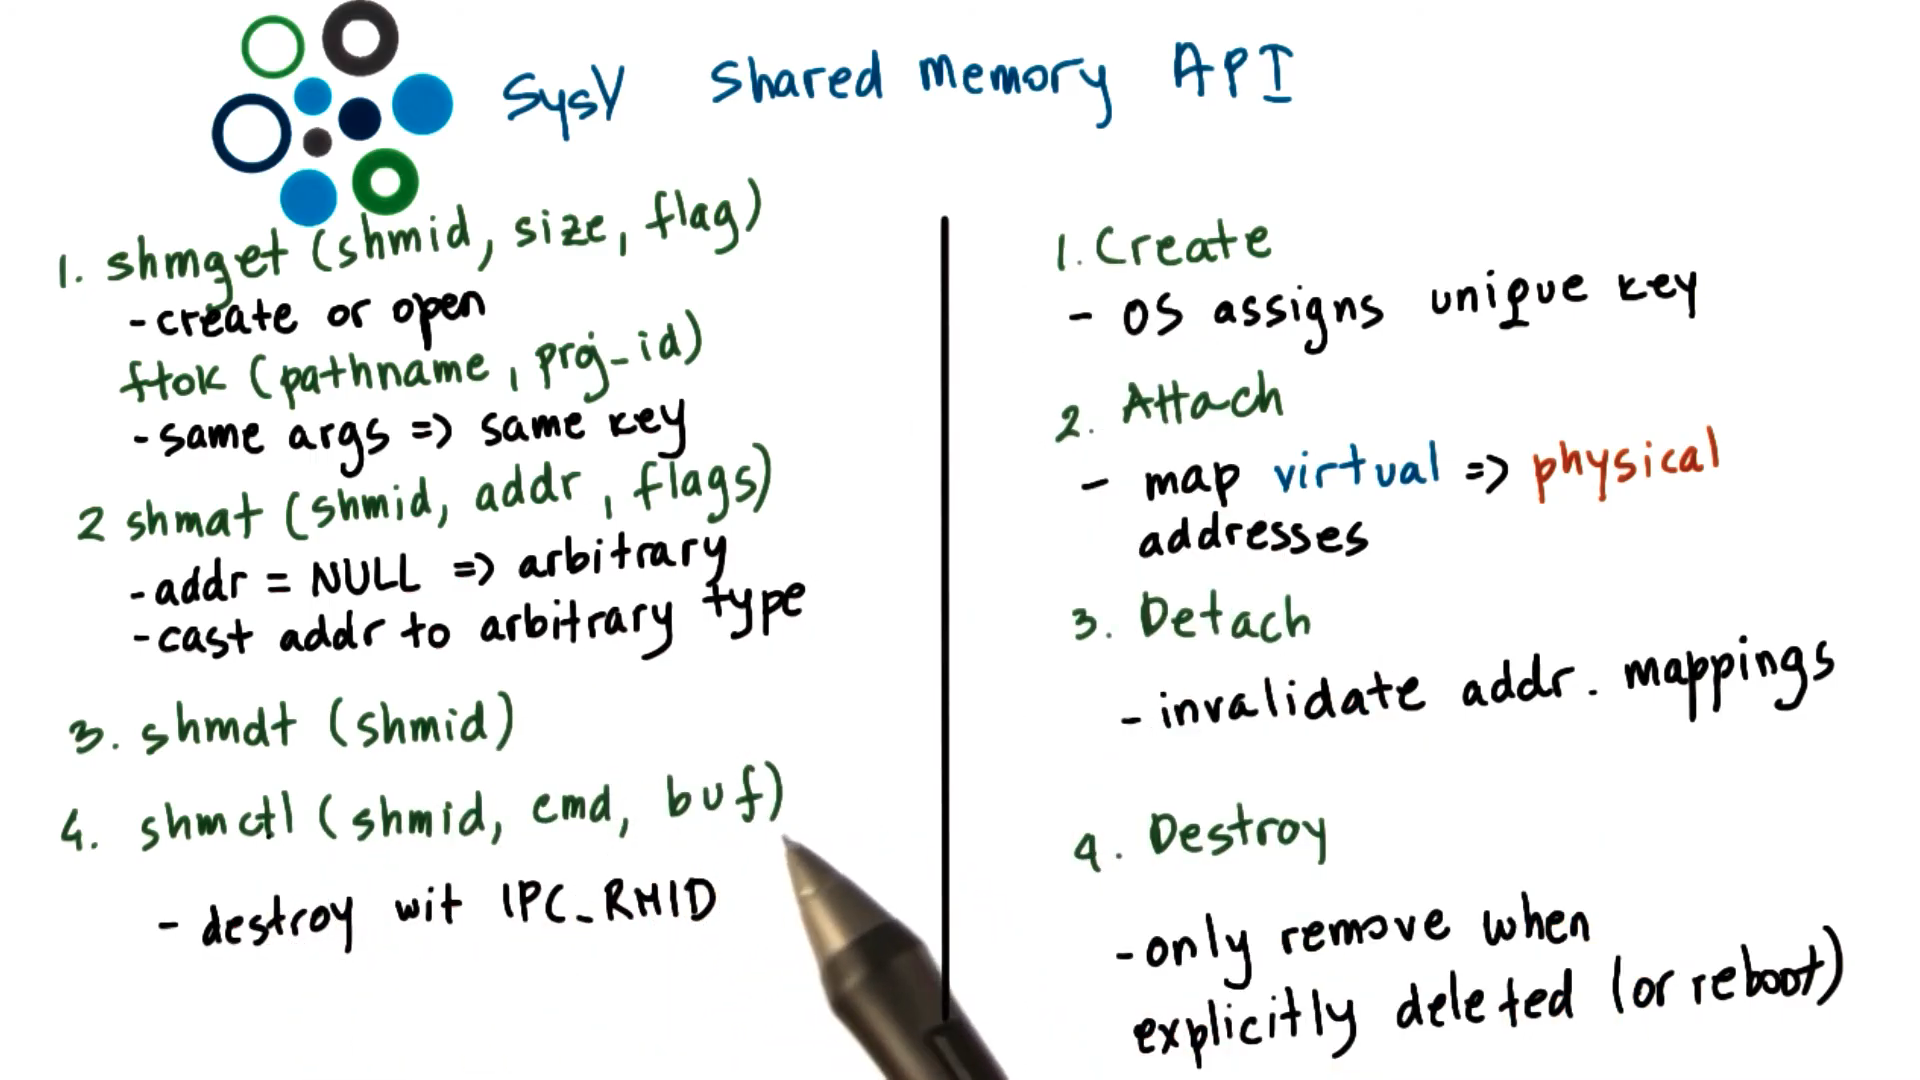 SysV shared memory API
1. shmget (shmid, size, flag)
- create or open
ftok (pathname, prj_id)
- same args => same key
2 shmat (shmid, addr, flags)
- addr = NULL => arbitrary
- cast addr to arbitrary type
3. shmdt (shmid)
4. shmctl (shmid, cmd, buf)
- destroy wit IPC_RMID
1. Create
- OS assigns unique key
2. Attach
- map virtual => physical
addresses
3. Detach
- invalidate addr. mappings
4. Destroy
- only remove when
explicitly deleted (or reboot)